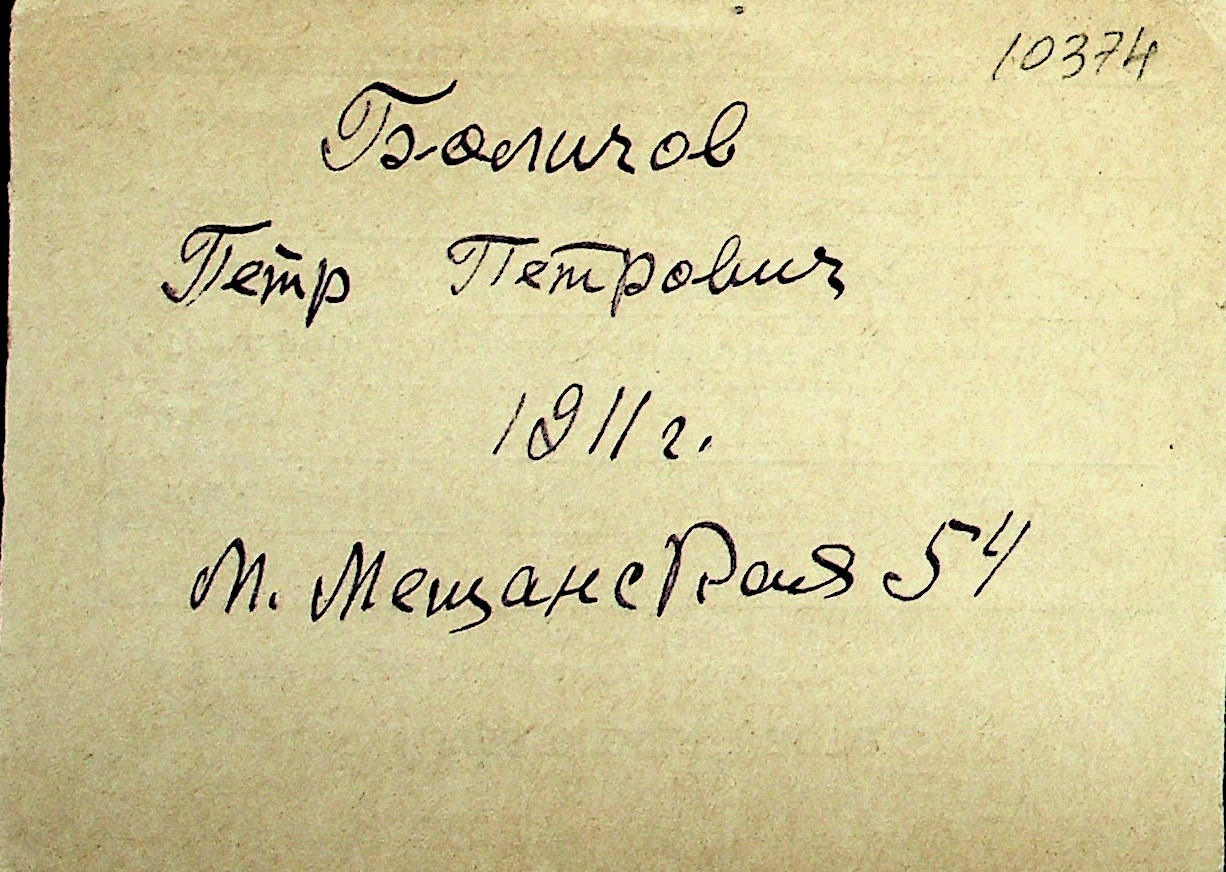 10374
Баличов
Петр Петрович
1911 г.
М. Мещанская 54